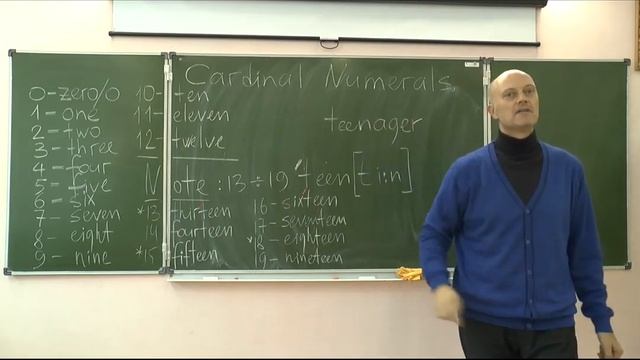 Cardinal Numerals
0 - zero/o
1 - one
2 - two
3 - three
4 - four
5 - five
6 - six
7 - seven
8 - eight
9 - nine
10 - ten
11 - eleven
12 - twelve
teenager
Note: 13 ÷ 19 'teen [ti:n]
*13 thirteen
14 fourteen
*15 fifteen
16 - sixteen
17 - seventeen
*18 - eighteen
19 - nineteen